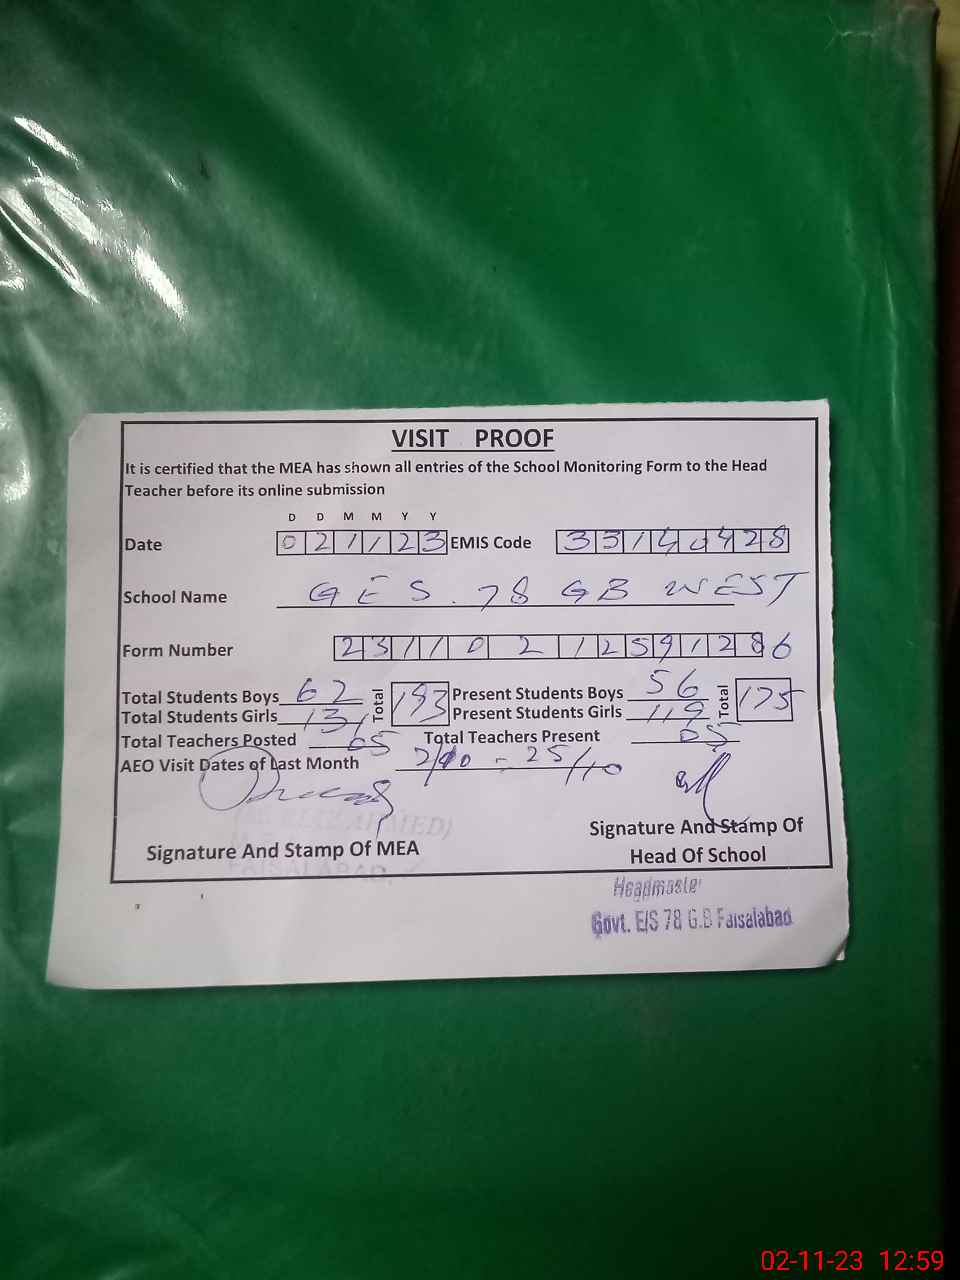 VISIT PROOF
It is certified that the MEA has shown all entries of the School Monitoring Form to the Head
Teacher before its online submission
D D M M Y Y
Date 021123 EMIS Code 33140428
School Name GES. 78 GB WEST
Form Number 23110212591286
Total Students Boys 62 Total 193 Present Students Boys 56 Total 175
Total Students Girls 131 Present Students Girls 119
Total Teachers Posted 05 Total Teachers Present 05
AEO Visit Dates of Last Month 2/10 - 25/10
Signature And Stamp Of MEA
Signature And Stamp Of
Head Of School
AHMED)
FAISALABAD.
Headmaster
Govt. E/S 78 G.B Faisalabad
02-11-23 12:59